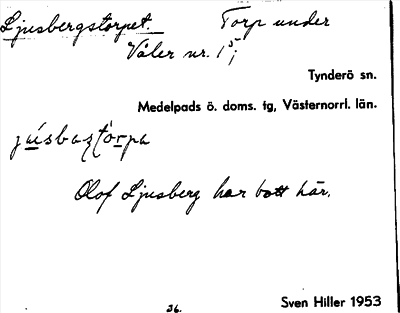 Ljusbergstorpet. Torp under
Våler nr. 15;
Tynderö sn.
Medelpads ö. doms. tg, Västernorrl. län.
Olof Ljusberg har bott här.
36.
Sven Hiller 1953